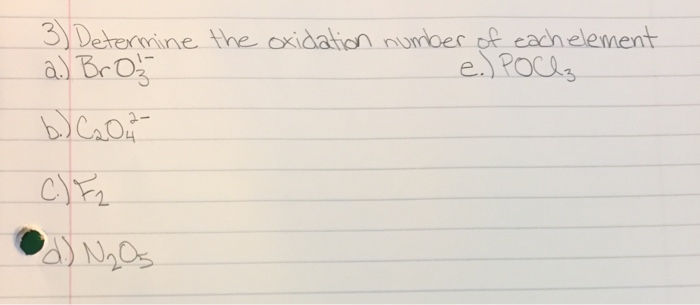 3) Determine the oxidation number of each element
a.) BrO₃¹⁻ e.) POCl₃
b.) C₂O₄²⁻
c.) F₂
d.) N₂O₅